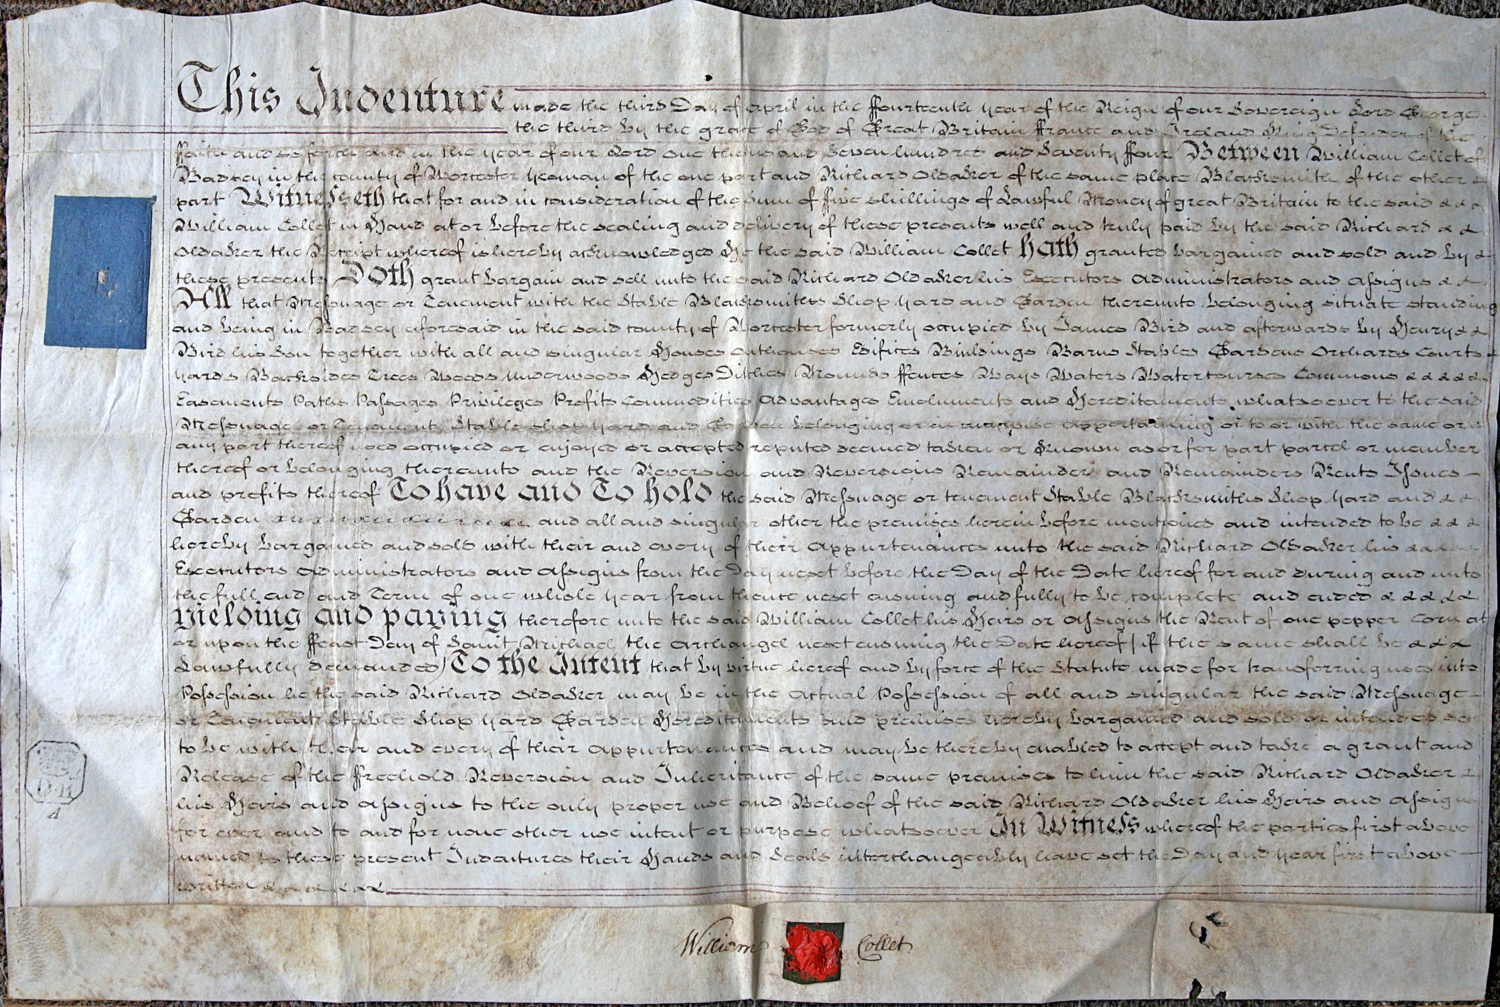 This Indenture made the third Day of April in the ffourteenth year of the Reign of our Sovereign Lord George
the third by the grace of God of Great Britain ffrance and Ireland King Defender of the
ffaith and so forth and in the year of our Lord One thousand Seven hundred and Seventy ffour Between William Collet of
Badsey in the county of Worcester yeoman of the one part and Richard Oldaker of the same place Blacksmith of the other
part Witnesseth that for and in consideration of the Sum of five shillings of Lawful Money of great Britain to the said & & &
William Collet in Hand at or before the sealing and delivery of these presents well and truly paid by the said Richard & &
Oldaker the Receipt whereof is hereby acknowledged He the said William Collet hath granted bargained and sold and by &
these presents Doth grant bargain and sell unto the said Richard Oldaker his Executors Administrators and Assigns & &
All that Messuage or Tenement with the Stable Blacksmiths Shop yard and Garden thereunto belonging situate standing
and being in Badsey aforesaid in the said county of Worcester formerly occupied by James Bird and afterwards by Henry & &
Bird his Son together with all and singular Houses Outhouses Edifices Buildings Barns Stables Gardens Orchards Courts &
yards Backsides Trees Woods Underwoods Hedges Ditches Mounds ffences Ways Waters Watercourses Commons & & & & &
Easements Paths Passages Privileges Profits Commodities Advantages Emoluments and Hereditaments whatsoever to the said
Messuage or Tenement Stable Shop yard and Garden belonging or in anywise appertaining or to or with the same or
any part thereof used occupied or enjoyed or accepted reputed deemed taken or known as or for part parcel or member
thereof or belonging thereunto and the Reversion and Reversions Remainder and Remainders Rents Issues
and profits thereof To have and To hold the said Messuage or tenement Stable Blacksmiths Shop yard and & &
Garden and all and singular other the premises herein before mentioned and intended to be & & &
hereby bargained and sold with their and every of their Appurtenances unto the said Richard Oldaker his & & & &
Executors Administrators and Assigns from the Day next before the Day of the Date hereof for and during and unto
the full end and Term of one whole year from thence next ensuing and fully to be complete and ended & & & & &
yielding and paying therefore unto the said William Collet his Heirs or Assigns the Rent of one pepper Corn at
or upon the ffeast Day of Saint Michael the Archangel next ensuing the Date hereof (if the same shall be & & &
Lawfully demanded) To the Intent that by virtue hereof and by force of the Statute made for transferring uses into
Possession he the said Richard Oldaker may be in the actual Possession of all and singular the said Messuage
or Tenement Stable Shop yard Garden Hereditaments and premises hereby bargained and sold or intended so
to be with their and every of their appurtenances and may be thereby enabled to accept and take a grant and
Release of the ffreehold Reversion and Inheritance of the same premises to him the said Richard Oldaker &
his Heirs and Assigns to the only proper use and Behoof of the said Richard Oldaker his Heirs and Assigns
for ever and to and for none other use intent or purpose whatsoever In Witness whereof the parties first above
named to these present Indentures their Hands and Seals interchangeably have set the Day and year first above
written & & & & & &
William Collet